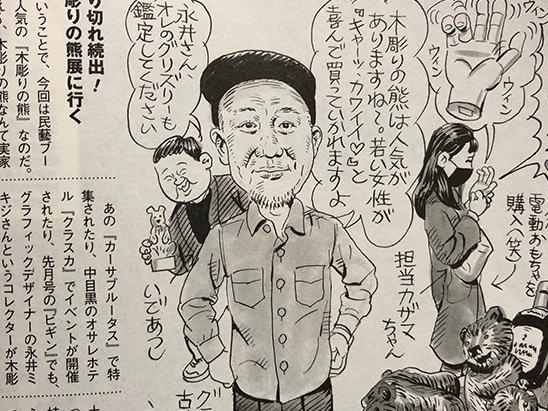 ウィン
ウィン
ウィン
電動おもちゃを
購入へ(笑)
木彫りの熊は人気が
ありますね〜。若い女性が
『キャーッ、カワイイ♡』と
喜んで買っていかれますよ
担当カザマ
ちゃん
永井さん、
オレのグリズリーも
鑑定してください
いであつし
グラ
古
り切れ続出！
彫りの熊展に行く
いうことで、今回は民藝ブー
人気の『木彫りの熊』なのだ。
木彫りの熊なんて実家
あの『カーサブルータス』で特
集されたり、中目黒のオサレホテ
ル『クラスカ』でイベントが開催
されたり、先月号の『ビギン』でも、
グラフィックデザイナーの永井ミ
キジさんというコレクターが木彫